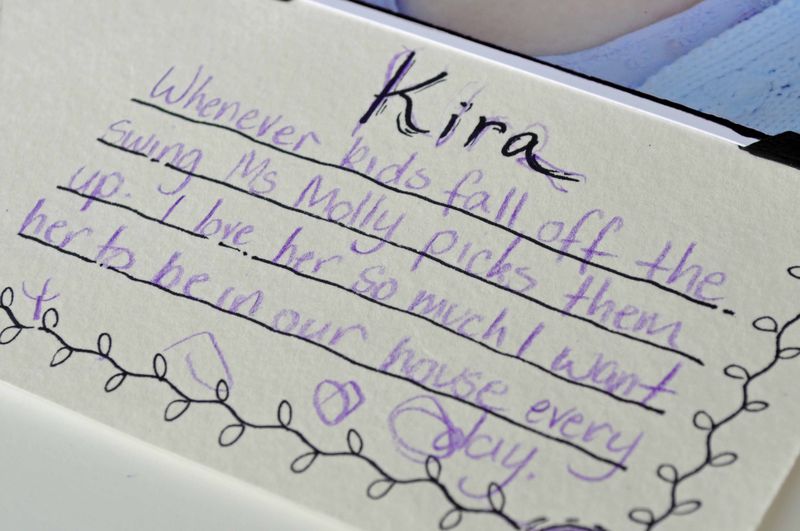 Kira
Whenever kids fall off the
swing Ms Molly picks them
up. I love her so much I want
her to be in our house every
day.